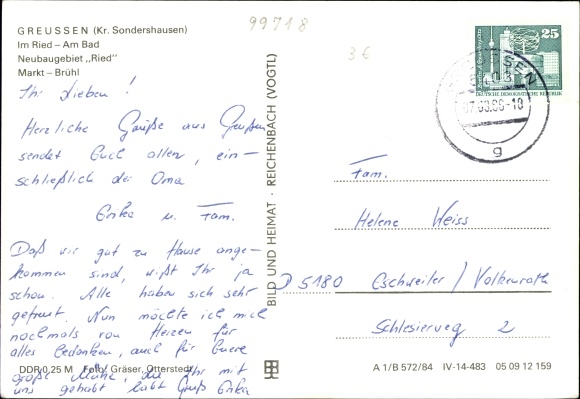 99718
3€
GREUSSEN (Kr. Sondershausen)
Im Ried – Am Bad
Neubaugebiet „Ried"
Markt – Brühl
Ihr Lieben!
Herzliche Grüße aus Greußen
sendet Euch allen, ein-
schließlich der Oma
Erika u. Fam.
Daß wir gut zu Hause ange-
kommen sind, wißt Ihr ja
schon. Alle haben sich sehr
gefreut. Nun möchte ich mich
nochmals von Herzen für
alles bedanken, auch für Euere
große Mühe, die Ihr mit
uns gehabt habt Gruß Erika
DDR 0,25 M Foto: Gräser, Otterstedt
BILD UND HEIMAT · REICHENBACH (VOGTL)
25
DEUTSCHE DEMOKRATISCHE REPUBLIK
GREUSSEN
5103
-10
g
Fam.
Helene Weiss
D 5180 Eschweiler / Volkenrath
Schlesierweg 2
A 1/B 572/84 IV-14-483 05 09 12 159